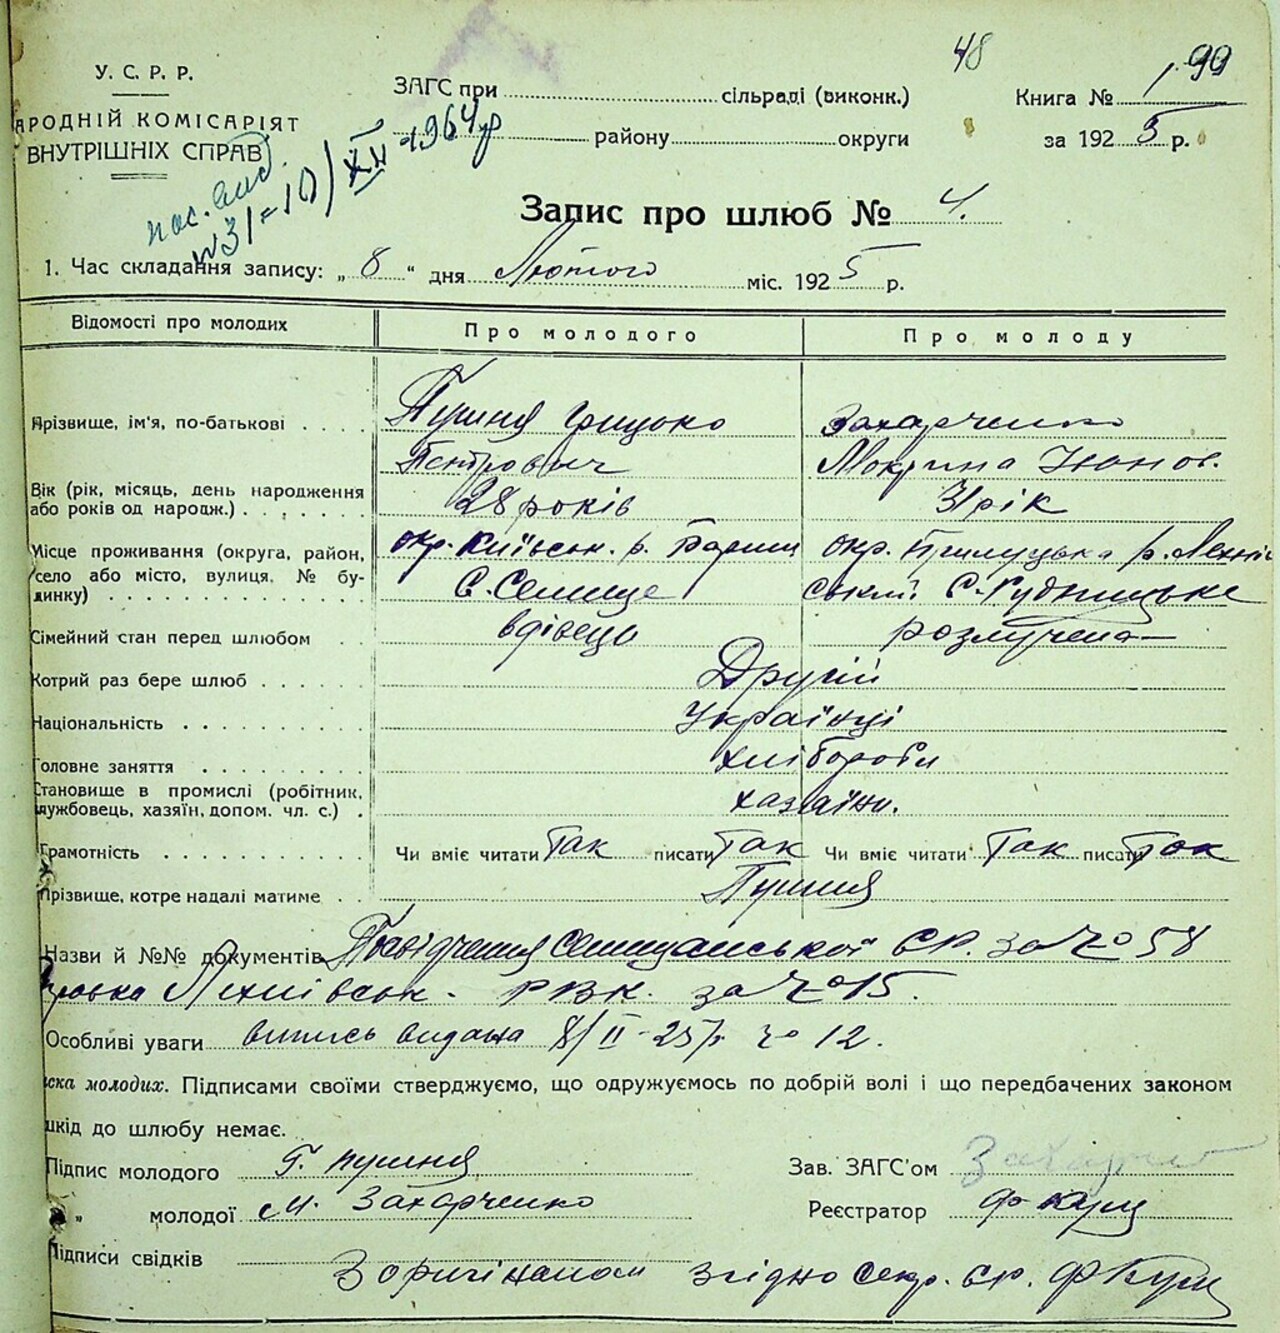 48
199
У. С. Р. Р.
АРОДНІЙ КОМІСАРІЯТ
ВНУТРІШНІХ СПРАВ
ЗАГС при сільраді (виконк.)
району округи
Книга №
за 1925 р.
№31=10/XII-1964р
Запис про шлюб № 4.
1. Час складання запису: „8“ дня Лютого міс. 1925 р.
Відомості про молодих Про молодого Про молоду
Прізвище, ім'я, по-батькові Пушня Грицько Захарченко
Петрович Мокрина Іванов.
Вік (рік, місяць, день народження
або років од народж.) 28 років 31 рік
Місце проживання (округа, район, окр. Київськ. р. Бариш окр. Прилуцька р. Лехнів
село або місто, вулиця, № бу-
динку) С. Селище ський С.
Сімейний стан перед шлюбом вдівець розлучена
Котрий раз бере шлюб Другий
Національність Українці
Головне заняття хлібороби
Становище в промислі (робітник,
лужбовець, хазяїн, допом. чл. с.) хазяїни.
Грамотність Чи вміє читати Так писати Так Чи вміє читати Так писати Так
Прізвище, котре надалі матиме Пушня
Назви й №№ документів Посвідчення Селищанської СР. за № 58
Лехнівськ. РВК. за № 15.
Особливі уваги випись видана 8/II-25р № 12.
ска молодих. Підписами своїми стверджуємо, що одружуємось по добрій волі і що передбачених законом
шкід до шлюбу немає.
Підпис молодого Г. Пушня Зав. ЗАГС'ом
„ молодої М. Захарченко Реєстратор
Підписи свідків
З оригіналом згідно Секр. СР.